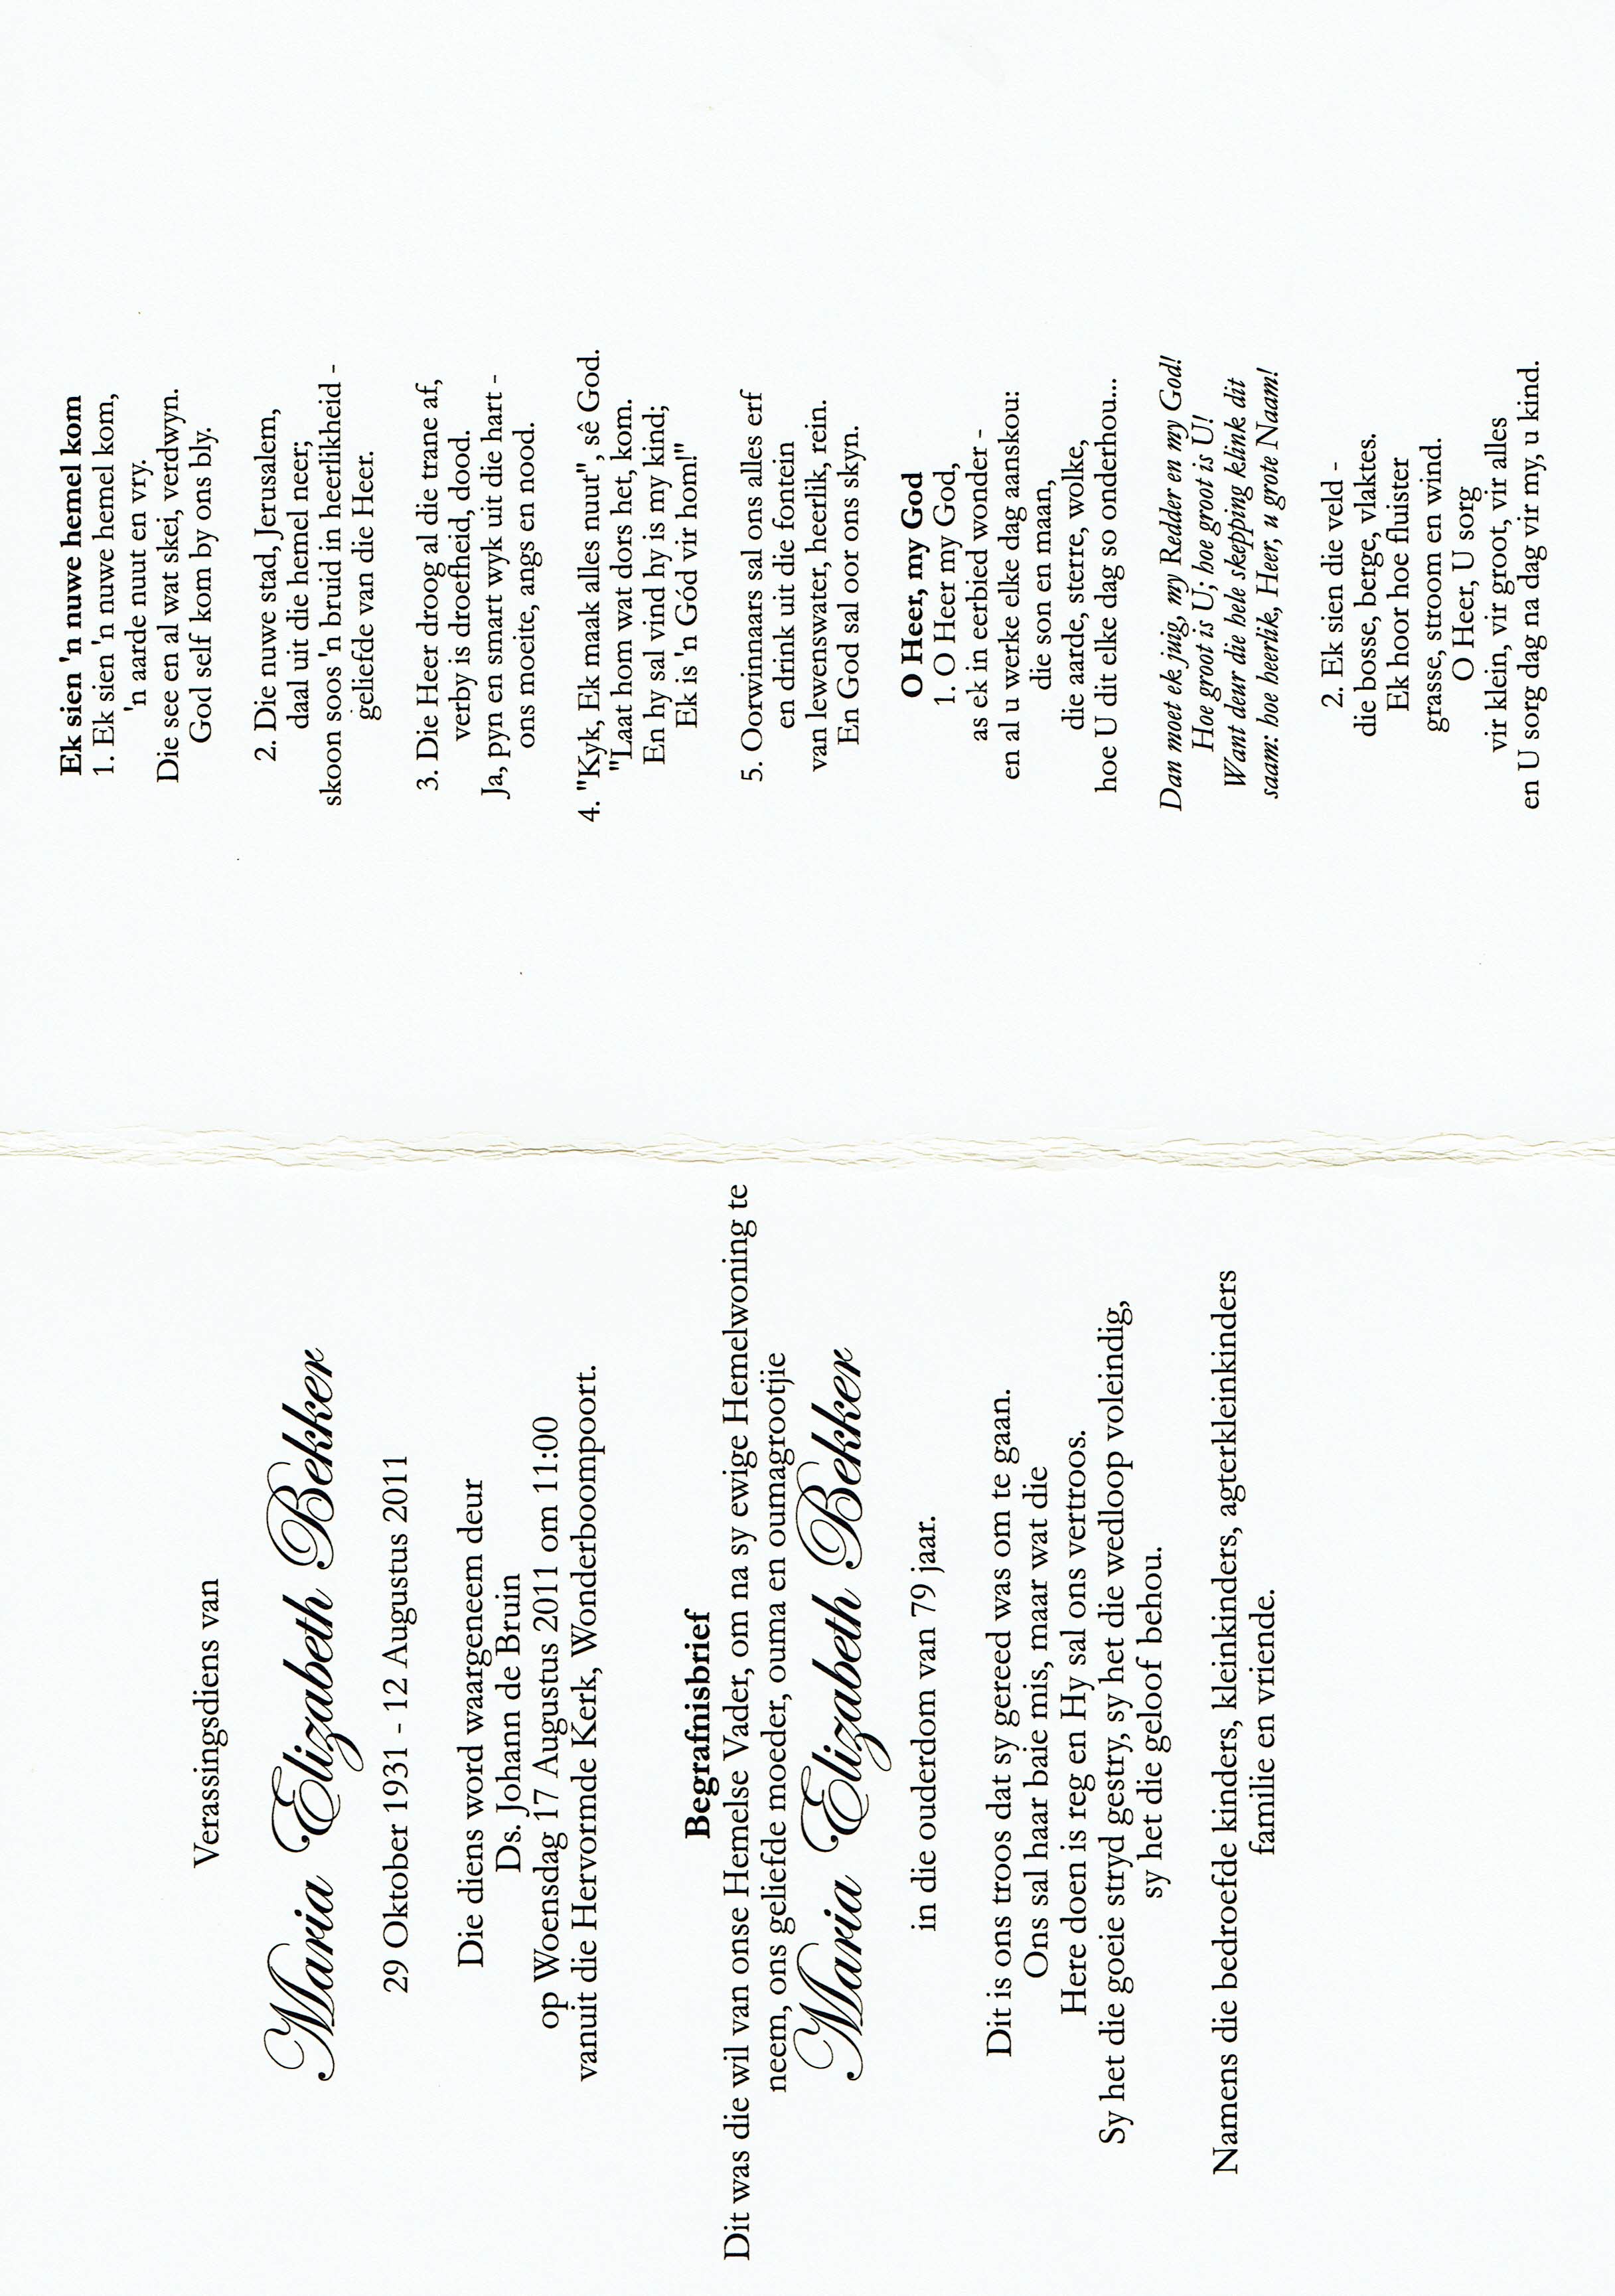 Verassingsdiens van
Maria Elizabeth Bekker
29 Oktober 1931 - 12 Augustus 2011
Die diens word waargeneem deur
Ds. Johann de Bruin
op Woensdag 17 Augustus 2011 om 11:00
vanuit die Hervormde Kerk, Wonderboompoort.
Begrafnisbrief
Dit was die wil van onse Hemelse Vader, om na sy ewige Hemelwoning te
neem, ons geliefde moeder, ouma en oumagrootjie
Maria Elizabeth Bekker
in die ouderdom van 79 jaar.
Dit is ons troos dat sy gereed was om te gaan.
Ons sal haar baie mis, maar wat die
Here doen is reg en Hy sal ons vertroos.
Sy het die goeie stryd gestry, sy het die wedloop voleindig,
sy het die geloof behou.
Namens die bedroefde kinders, kleinkinders, agterkleinkinders
familie en vriende.
Ek sien 'n nuwe hemel kom
1. Ek sien 'n nuwe hemel kom,
'n aarde nuut en vry.
Die see en al wat skei, verdwyn.
God self kom by ons bly.
2. Die nuwe stad, Jerusalem,
daal uit die hemel neer;
skoon soos 'n bruid in heerlikheid -
geliefde van die Heer.
3. Die Heer droog al die trane af,
verby is droefheid, dood.
Ja, pyn en smart wyk uit die hart -
ons moeite, angs en nood.
4. "Kyk, Ek maak alles nuut", sê God.
"Laat hom wat dors het, kom.
En hy sal vind hy is my kind;
Ek is 'n Gód vir hom!"
5. Oorwinnaars sal ons alles erf
en drink uit die fontein
van lewenswater, heerlik, rein.
En God sal oor ons skyn.
O Heer, my God
1. O Heer my God,
as ek in eerbied wonder -
en al u werke elke dag aanskou:
die son en maan,
die aarde, sterre, wolke,
hoe U dit elke dag so onderhou...
Dan moet ek juig, my Redder en my God!
Hoe groot is U; hoe groot is U!
Want deur die hele skepping klink dit
saam: hoe heerlik, Heer, u grote Naam!
2. Ek sien die veld -
die bosse, berge, vlaktes.
Ek hoor hoe fluister
grasse, stroom en wind.
O Heer, U sorg
vir klein, vir groot, vir alles
en U sorg dag na dag vir my, u kind.